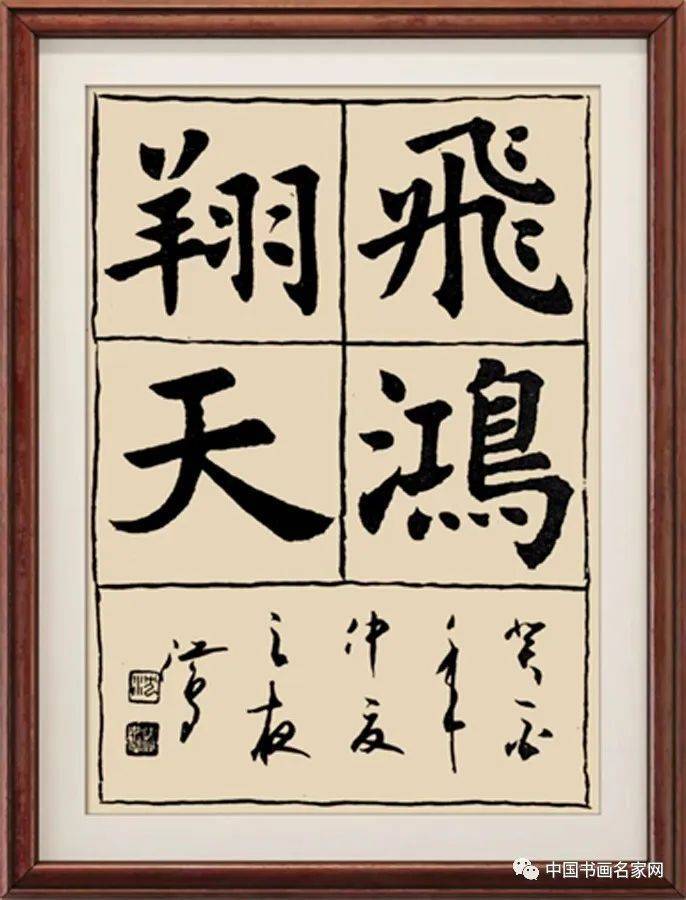 飛鴻
翔天
癸酉
年
仲夏
之夜
中国书画名家网